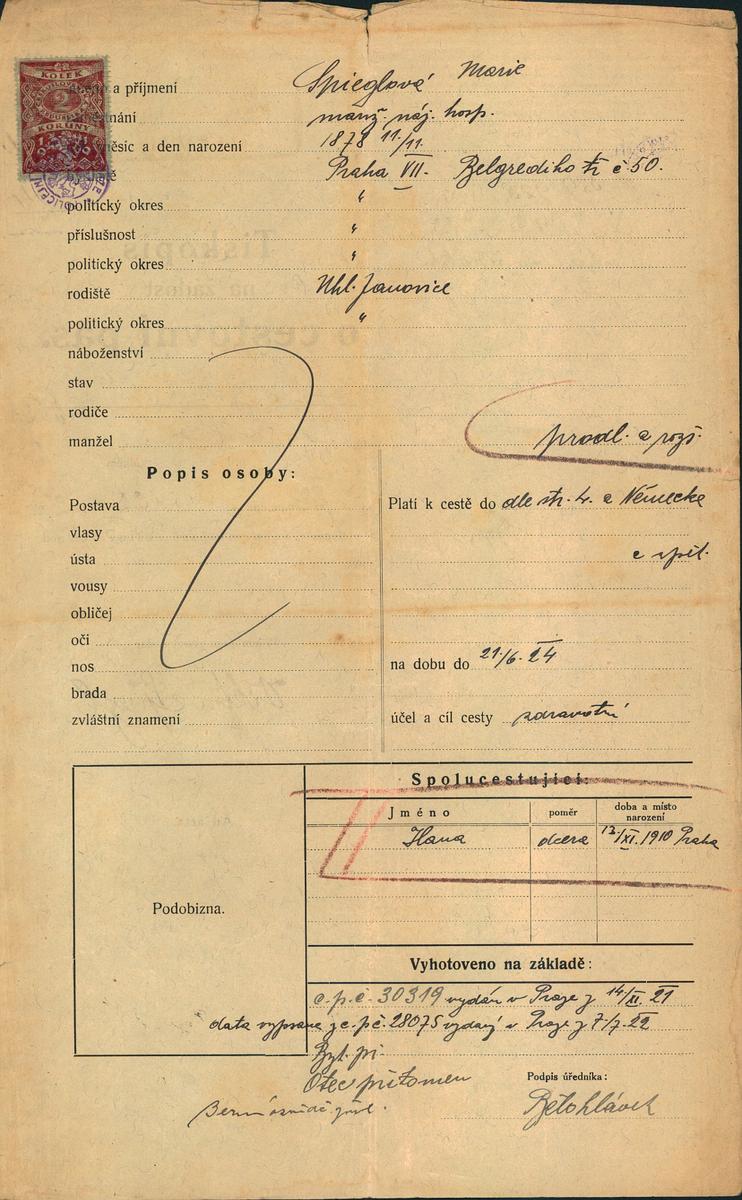 KOLEK
2
KORUNY
a příjmení Spieglová Marie
manž. náj. hosp.
měsíc a den narození 1878 11/11.
Praha VII. Belgrediho tř. č 50.
politický okres "
příslušnost "
politický okres "
rodiště Uhl. Janovice
politický okres "
náboženství
stav
rodiče
manžel
prodl. a rozš.
Popis osoby:
Postava
vlasy
ústa
vousy
obličej
oči
nos
brada
zvláštní znamení
Platí k cestě do dle str. 4. a Německa
a zpět.
na dobu do 21/6. 24
účel a cíl cesty zdravotní
Spolucestující:
Jméno poměr doba a místo narození
Hana dcera 12/XI. 1910 Praha
Podobizna.
Vyhotoveno na základě:
c.p.č. 30319 vydán v Praze z 14/XI. 21
data vypsána z c.p.č. 28075 vydaný v Praze z 7/7. 22
Byt. př.
Otec přítomen
Podpis úředníka:
Bělohlávek